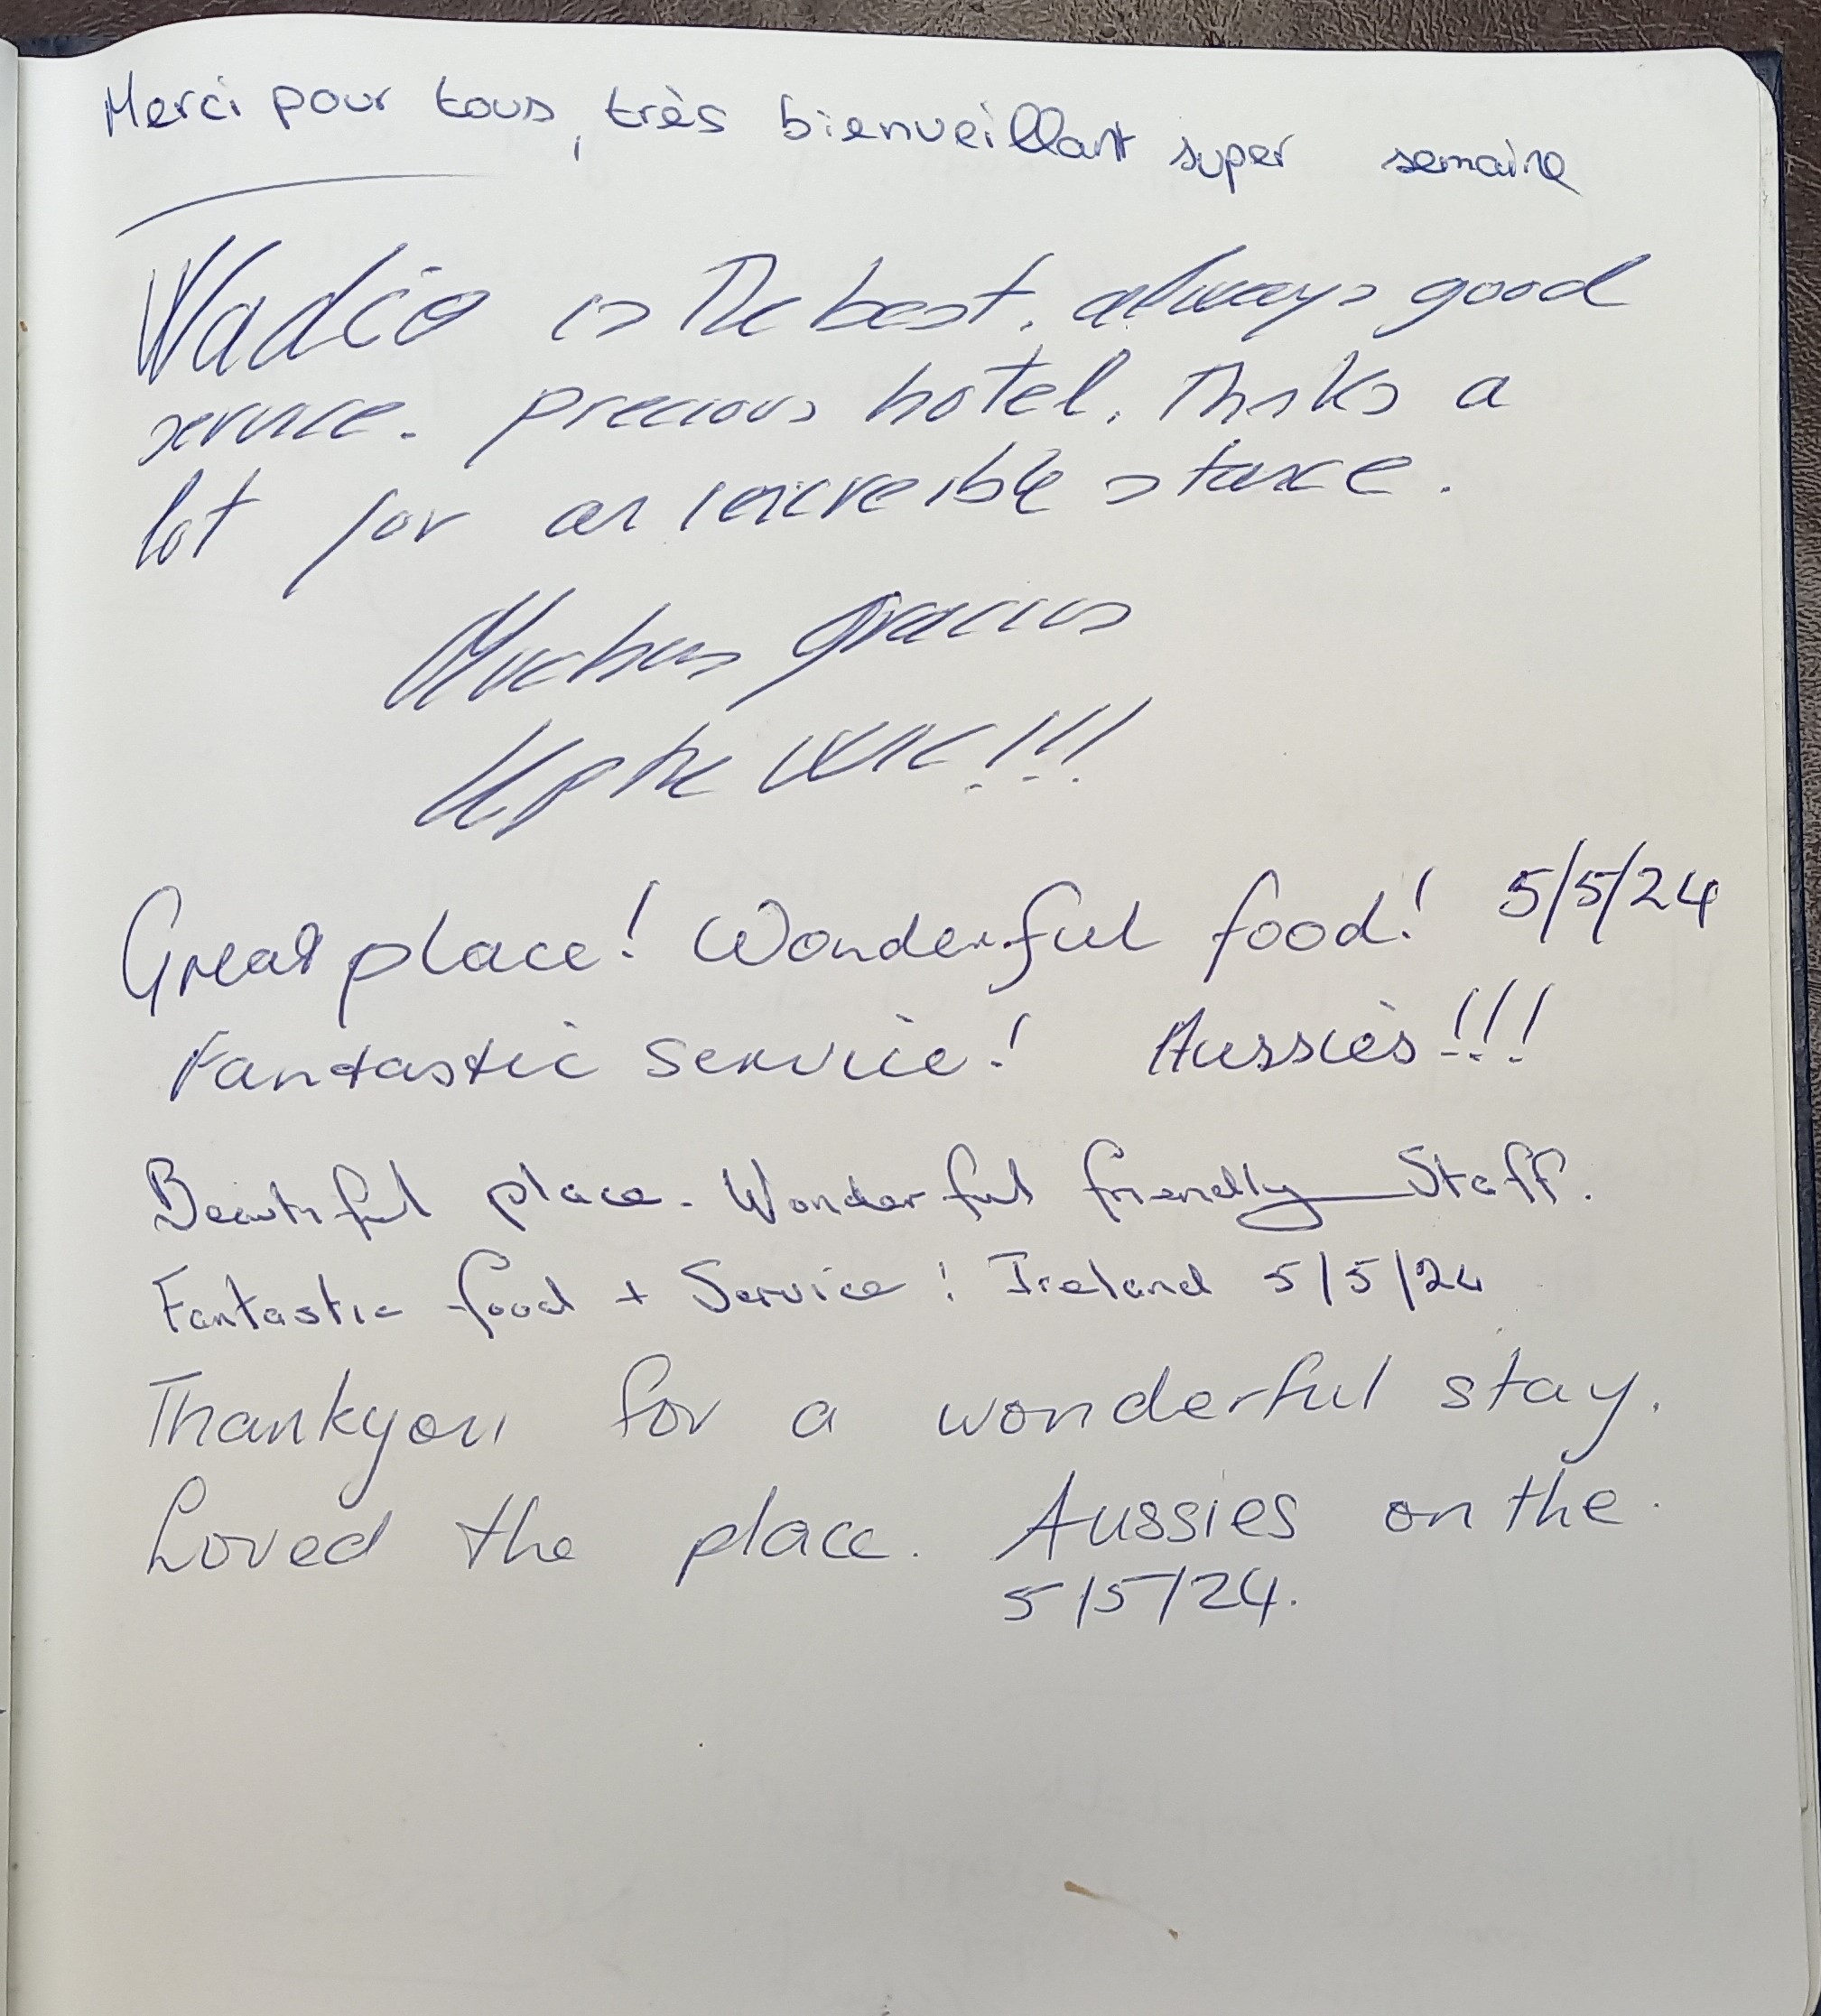 Merci pour tous, très bienveillant super semaine
Wadio is The best. always good
service. precious hotel. Thnks a
lot for an increible stance.
Muchas gracias
Up the
Great place! Wonderful food! 5/5/24
Fantastic service! Aussies!!!
Beautiful place. Wonderful friendly Staff.
Fantastic food + Service! Ireland 5/5/24
Thankyou for a wonderful stay.
Loved the place. Aussies on the.
5/5/24.